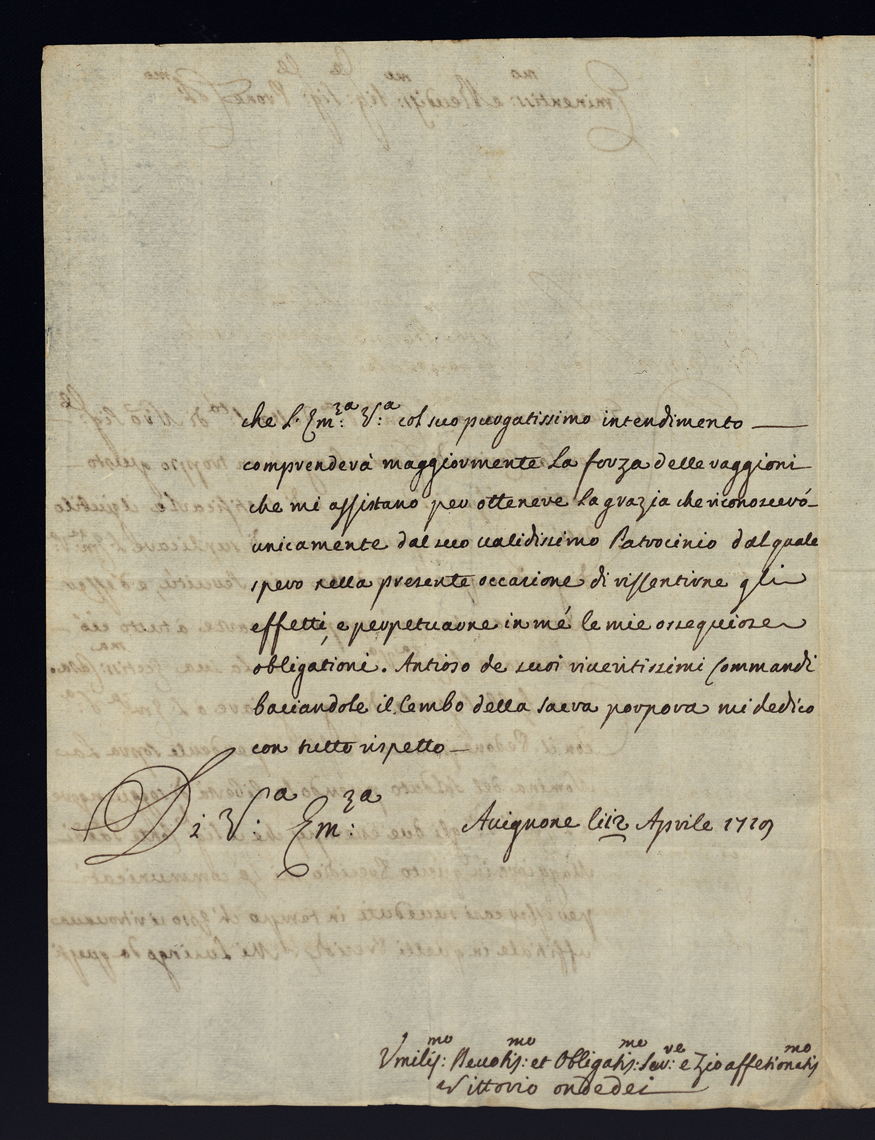 che L'Em:za V:a col suo purgatissimo intendimento
comprenderà maggiormente la forza delle raggioni
che mi assistano per ottenere la grazia che riconoscerò
unicamente dal suo ualidissimo Patrocinio dal quale
spero nella presente occasione di rissentirne gli
effetti, e perpetuarne in mé le mie ossequiose
obligationi. Antioso de suoi riueritissimi Commandi
baciandole il Lembo della sacra porpora mi dedico
con tutto rispetto
Di V:a Em:za
Auignone li 12 Aprile 1719
Vmilis:mo Deuotis:mo et Obligatis:mo Ser:ve e Zio affetionatis:mo
Vittorio ondedei